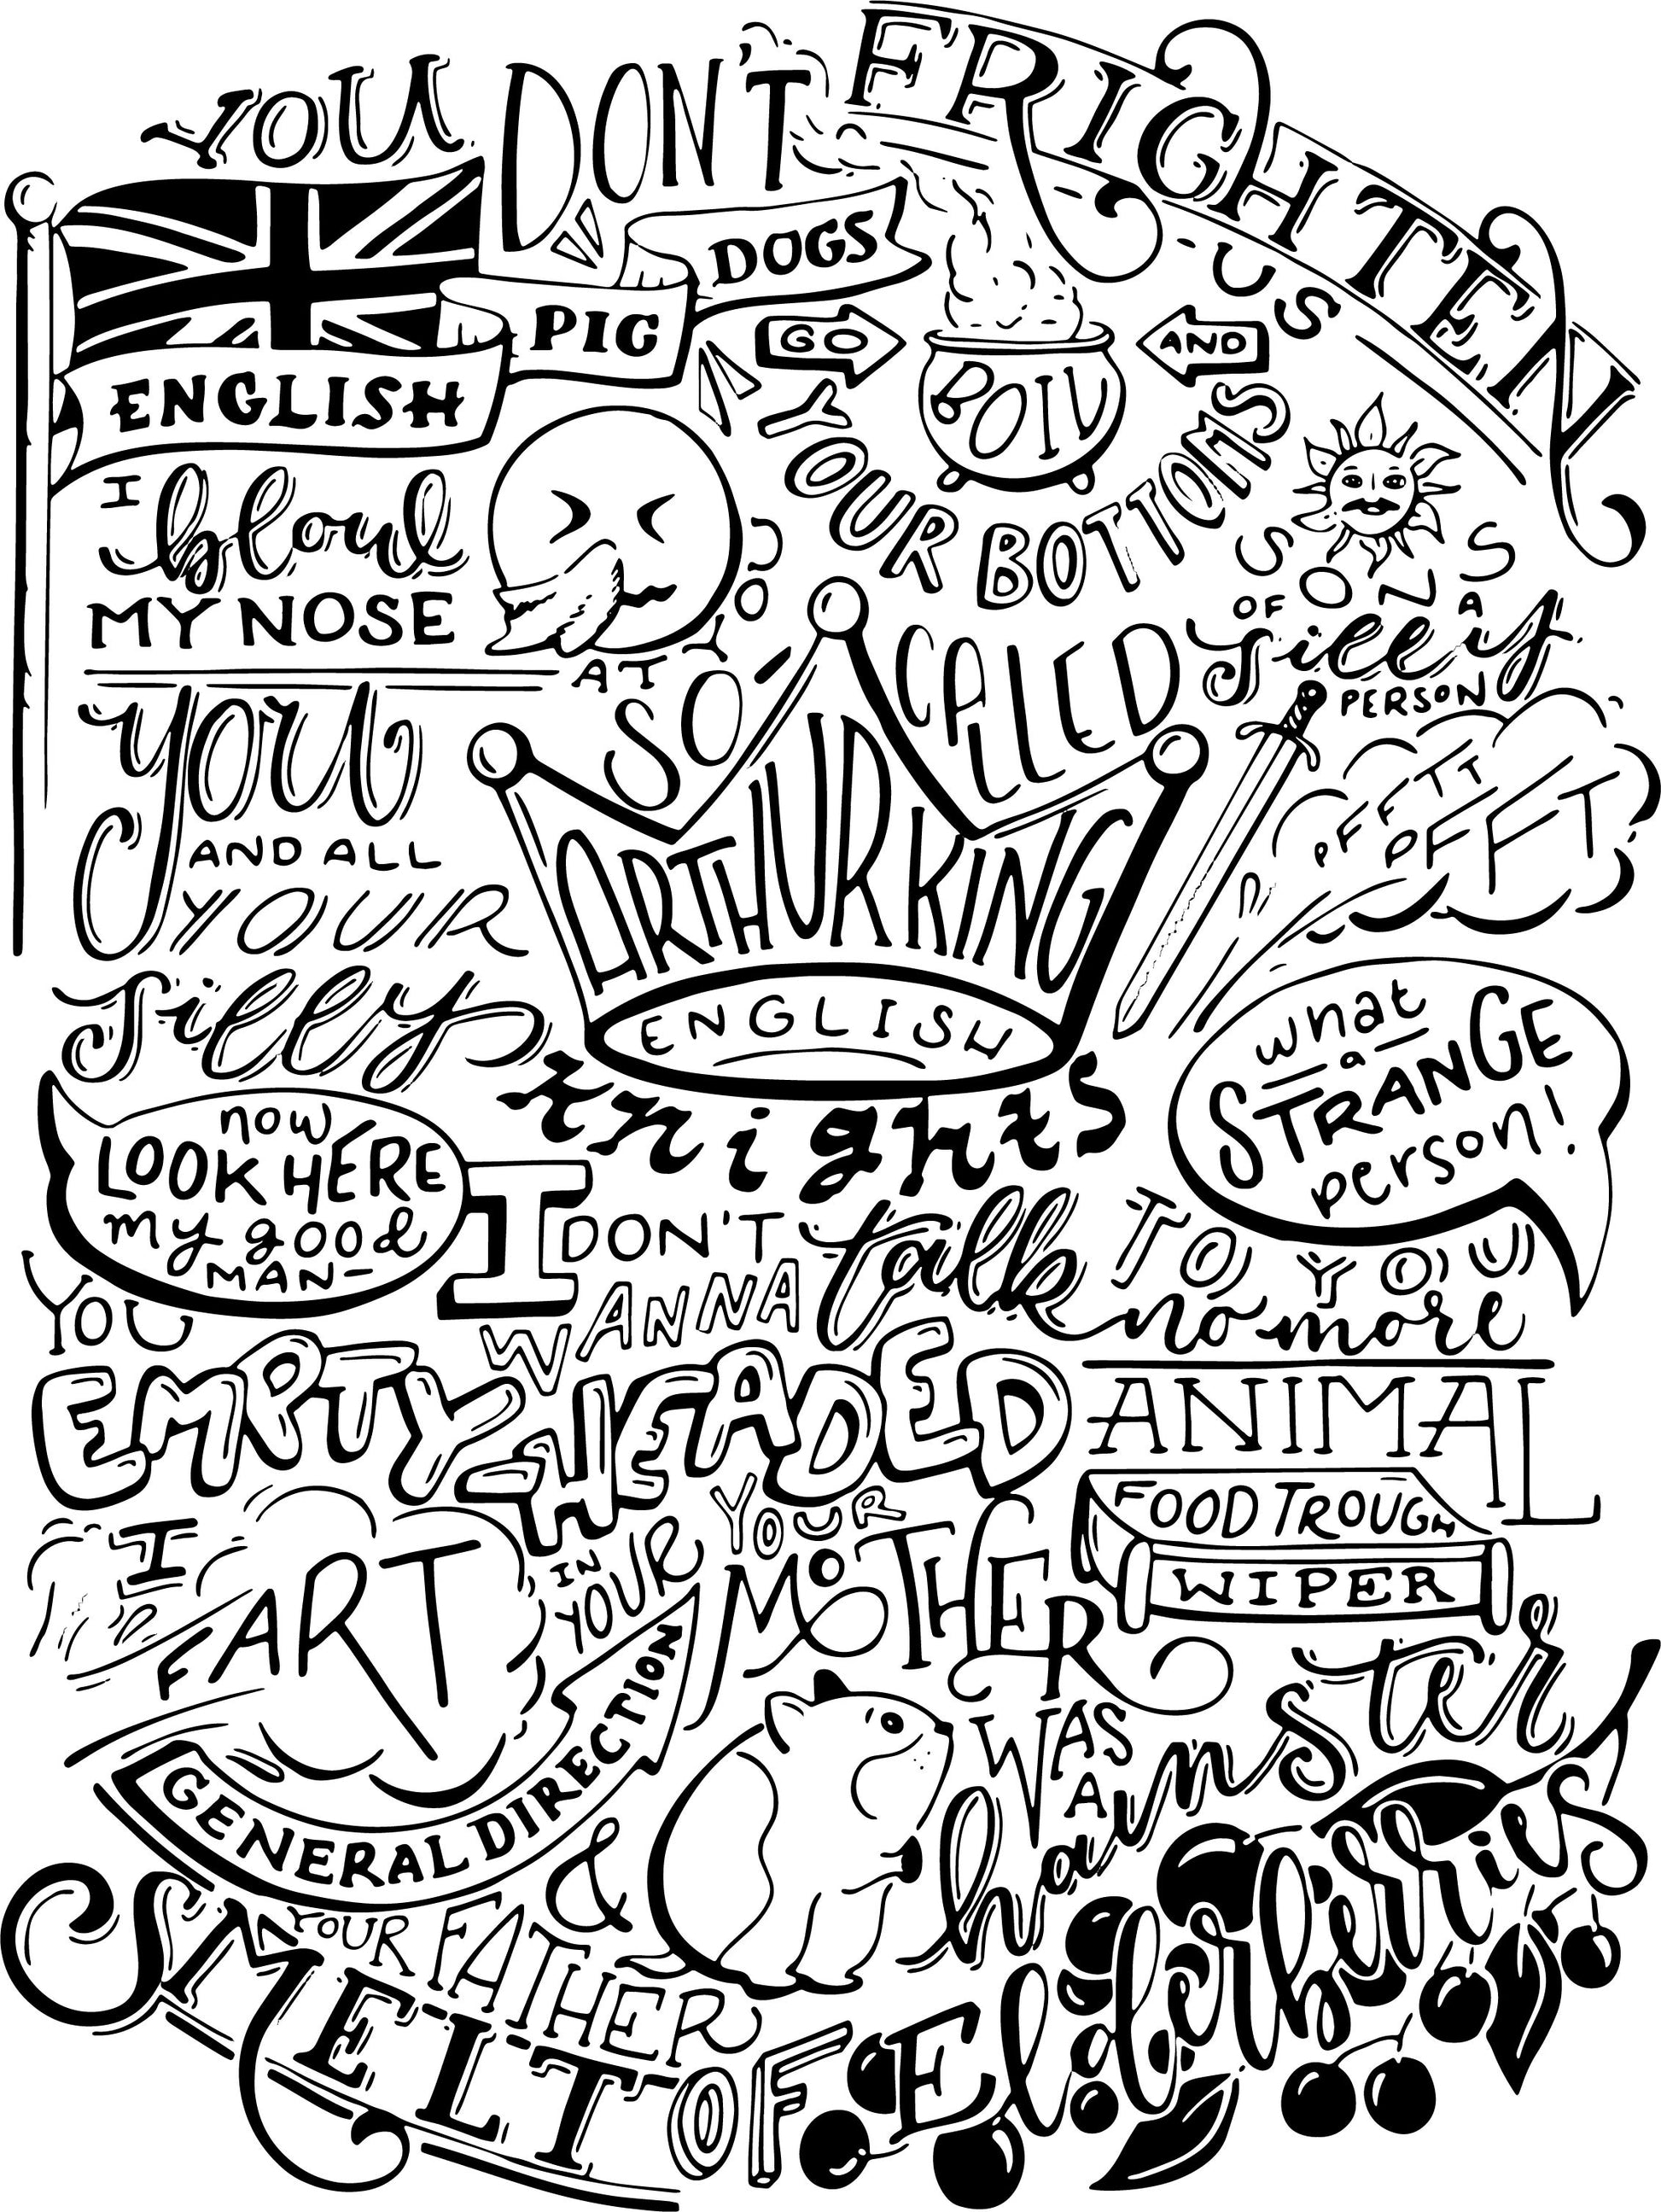 YOU DON'T FRIGHTEN US
ENGLISH PIG DOGS
GO AND BOIL
YOUR BOTTOMS
SONS OF A
Silly PERSON
I blow
MY NOSE
AT YOU
SO-CALLED
ARTHUR KING
YOU
AND ALL
YOUR
Silly
ENGLISH
knights
PFFTT
PFFT
what
a
STRANGE
person!
now
LOOK HERE
my good
MAN
I DON'T
WANNA
talk TO YOU
no more
YOU
EMPTY
HEADED
ANIMAL
FOOD TROUGH
WIPER
I
FART
IN YOUR
GENERAL DIRECTION
YOUR
MOTHER
WAS
A
hamster
&
YOUR
FATHER
SMELT OF
elderberries